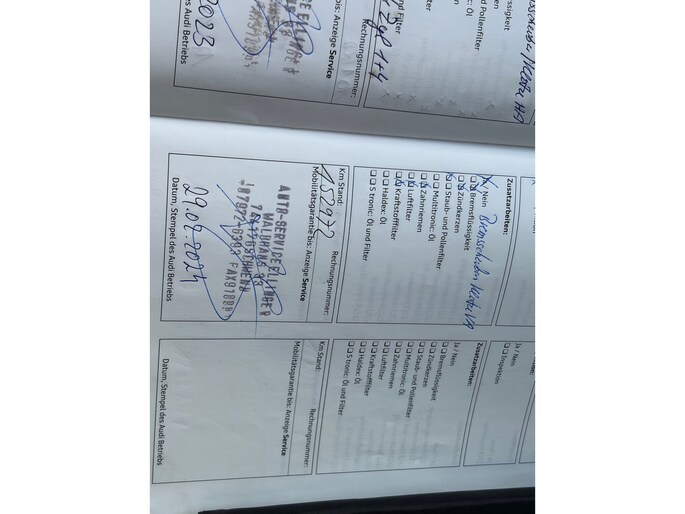 Bremsscheiben / Klötze HA
ssigkeit
und Pollenfilter
c: Öl
und Filter
Rechnungsnummer:
bis: Anzeige Service
2023
des Audi Betriebs
Zusatzarbeiten:
Ja / Nein
Bremsscheiben Klötze VA
Bremsflüssigkeit
Zündkerzen
Staub- und Pollenfilter
Multitronic: Öl
Zahnriemen
Luftfilter
Kraftstofffilter
Haldex: Öl
S tronic: Öl und Filter
Km Stand: Rechnungsnummer:
152972
Mobilitätsgarantie bis: Anzeige Service
AUTO-SERVICE ELLINGER
29.02.2024
Datum, Stempel des Audi Betriebs
Ja / Nein
Inspektion
Zusatzarbeiten:
Ja / Nein
Bremsflüssigkeit
Zündkerzen
Staub- und Pollenfilter
Multitronic: Öl
Zahnriemen
Luftfilter
Kraftstofffilter
Haldex: Öl
S tronic: Öl und Filter
Km Stand: Rechnungsnummer:
Mobilitätsgarantie bis: Anzeige Service
Datum, Stempel des Audi Betriebs